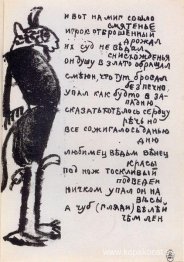 и вот на миг сошло
смятенье
игрок отерошенный
дрожал
их суд не ведал
снисхожденья
он душу в злато обращал
смеюн, что тут бродал
безпечно
упал как будто в за-
паднию
сказать хотелось сердцу
речь но
все сожигалось данью
дню
любимец ведьм венец
красы
под нож тоскливый
подведен
ничком упал он на
весы
а чуб белей
чем лен